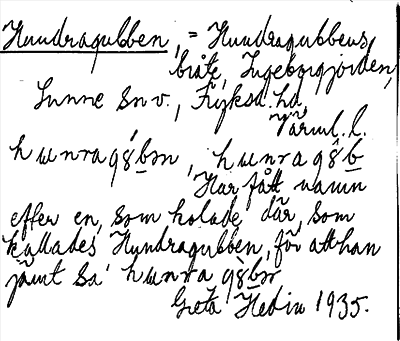 Hundragubben, = Hundragubbens
bråte, Ingeborgjorden,
Sunne sn v., Fryksd. hd,
Värml. l.
hunragǿbən, hunragǿb
Har fått namn
efter en, som kolade där, som
kallades Hundragubben, för att han
jämt sa' hunra gǿbər
Greta Hedin 1935.